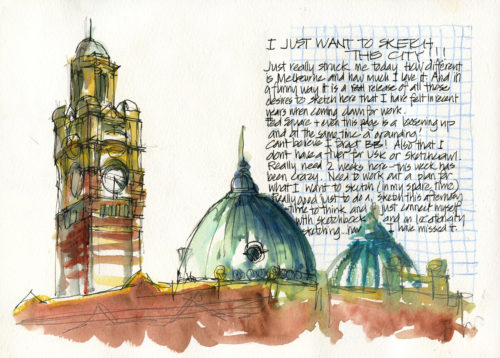 I JUST WANT TO SKETCH
THIS CITY!!
Just really struck me today how different
is Melbourne and how much I love it. And in
a funny way it is a release of all those
desires to sketch here that I have felt in recent
years when coming down for work.
Fed Square + even this page is a loosening up
and at the same time a grounding!
Can't believe I forgot BB! Also that I
don't have a flyer for USK or Sketchcrawl.
Really need 2 weeks here - this week has
been crazy. Need to work out a plan for
what I want to sketch (in my spare time)
Really good just to do a sketch this afternoon
time to think and just connect myself
with sketchbook and on location city
sketching... I have missed it.